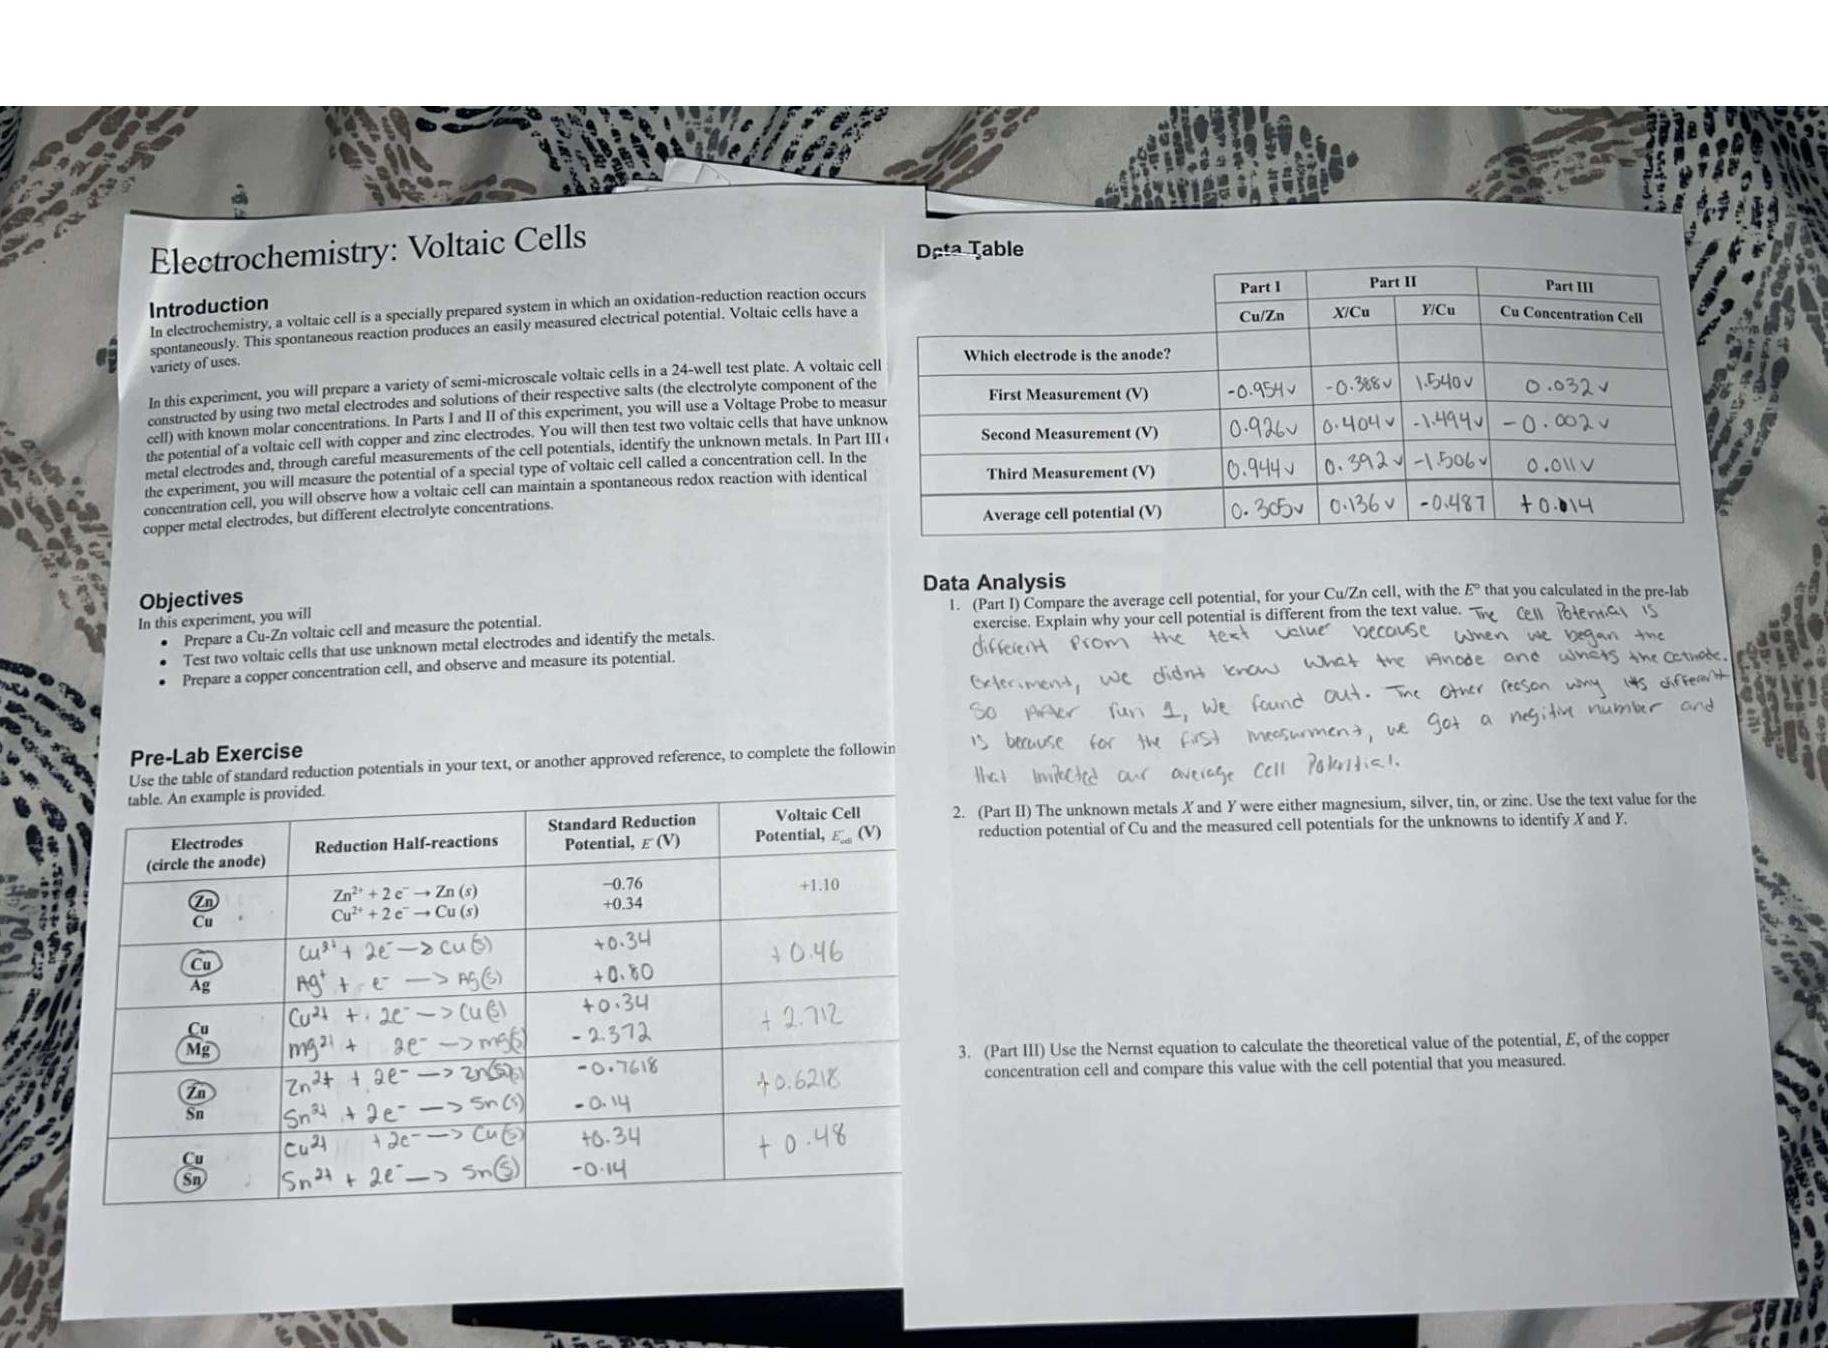 Electrochemistry: Voltaic Cells
Introduction
In electrochemistry, a voltaic cell is a specially prepared system in which an oxidation-reduction reaction occurs
spontaneously. This spontaneous reaction produces an easily measured electrical potential. Voltaic cells have a
variety of uses.
In this experiment, you will prepare a variety of semi-microscale voltaic cells in a 24-well test plate. A voltaic cell
constructed by using two metal electrodes and solutions of their respective salts (the electrolyte component of the
cell) with known molar concentrations. In Parts I and II of this experiment, you will use a Voltage Probe to measur
the potential of a voltaic cell with copper and zinc electrodes. You will then test two voltaic cells that have unknow
metal electrodes and, through careful measurements of the cell potentials, identify the unknown metals. In Part III
the experiment, you will measure the potential of a special type of voltaic cell called a concentration cell. In the
concentration cell, you will observe how a voltaic cell can maintain a spontaneous redox reaction with identical
copper metal electrodes, but different electrolyte concentrations.
Objectives
In this experiment, you will
• Prepare a Cu-Zn voltaic cell and measure the potential.
• Test two voltaic cells that use unknown metal electrodes and identify the metals.
• Prepare a copper concentration cell, and observe and measure its potential.
Pre-Lab Exercise
Use the table of standard reduction potentials in your text, or another approved reference, to complete the followin
table. An example is provided.
Electrodes (circle the anode) Reduction Half-reactions Standard Reduction Potential, E (V) Voltaic Cell Potential, E°cell (V)
Zn Zn²⁺ + 2 e⁻ → Zn (s) −0.76 +1.10
Cu Cu²⁺ + 2 e⁻ → Cu (s) +0.34
Cu Cu²⁺ + 2e⁻ → Cu(s) +0.34 +0.46
Ag Ag⁺ + e⁻ → Ag(s) +0.80
Cu Cu²⁺ + 2e⁻ → Cu(s) +0.34 +2.712
Mg mg²⁺ + 2e⁻ → mg(s) -2.372
Zn Zn²⁺ + 2e⁻ → Zn(s) -0.7618 +0.6218
Sn Sn²⁺ + 2e⁻ → Sn(s) -0.14
Cu Cu²⁺ + 2e⁻ → Cu(s) +0.34 +0.48
Sn Sn²⁺ + 2e⁻ → Sn(s) -0.14
Data Table
Part I Part II Part III
Cu/Zn X/Cu Y/Cu Cu Concentration Cell
Which electrode is the anode?
First Measurement (V) -0.954v -0.388v 1.540v 0.032v
Second Measurement (V) 0.926v 0.404v -1.494v -0.002v
Third Measurement (V) 0.944v 0.392v -1.506v 0.011v
Average cell potential (V) 0.305v 0.136v -0.487 +0.014
Data Analysis
1. (Part I) Compare the average cell potential, for your Cu/Zn cell, with the E° that you calculated in the pre-lab
exercise. Explain why your cell potential is different from the text value. The cell Potential is
different from the text value because when we began the
Experiment, we didnt know what the Anode and whats the Cathode.
So After run 1, we found out. The other reason why its different
is because for the first measurment, we got a negitive number and
that our average cell Potential.
2. (Part II) The unknown metals X and Y were either magnesium, silver, tin, or zinc. Use the text value for the
reduction potential of Cu and the measured cell potentials for the unknowns to identify X and Y.
3. (Part III) Use the Nernst equation to calculate the theoretical value of the potential, E, of the copper
concentration cell and compare this value with the cell potential that you measured.